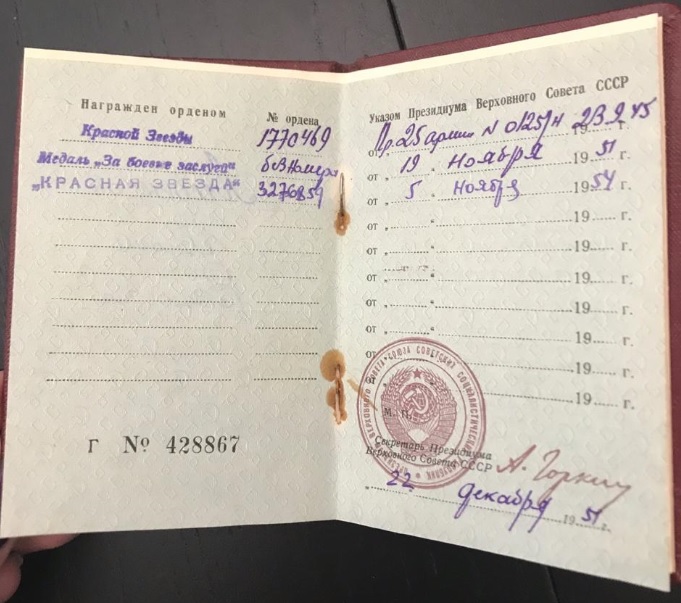 Награжден орденом
№ ордена
Красной Звезды
1770469
Медаль „За боевые заслуги“
без номера
„КРАСНАЯ ЗВЕЗДА“
3276859
Г № 428867
Указом Президиума Верховного Совета СССР
от Пр. 25 армии N 0125/Н 23 9 45 г.
от „ 19 “ Ноября 1951 г.
от „ 5 “ Ноября 1954 г.
от „ “ 19 г.
от „ “ 19 г.
от „ “ 19 г.
от „ “ 19 г.
от „ “ 19 г.
от 19 г.
от 19 г.
М. П.
Секретарь Президиума
Верховного Совета СССР
А. Горкин
„ 22 “ декабря 1951 г.